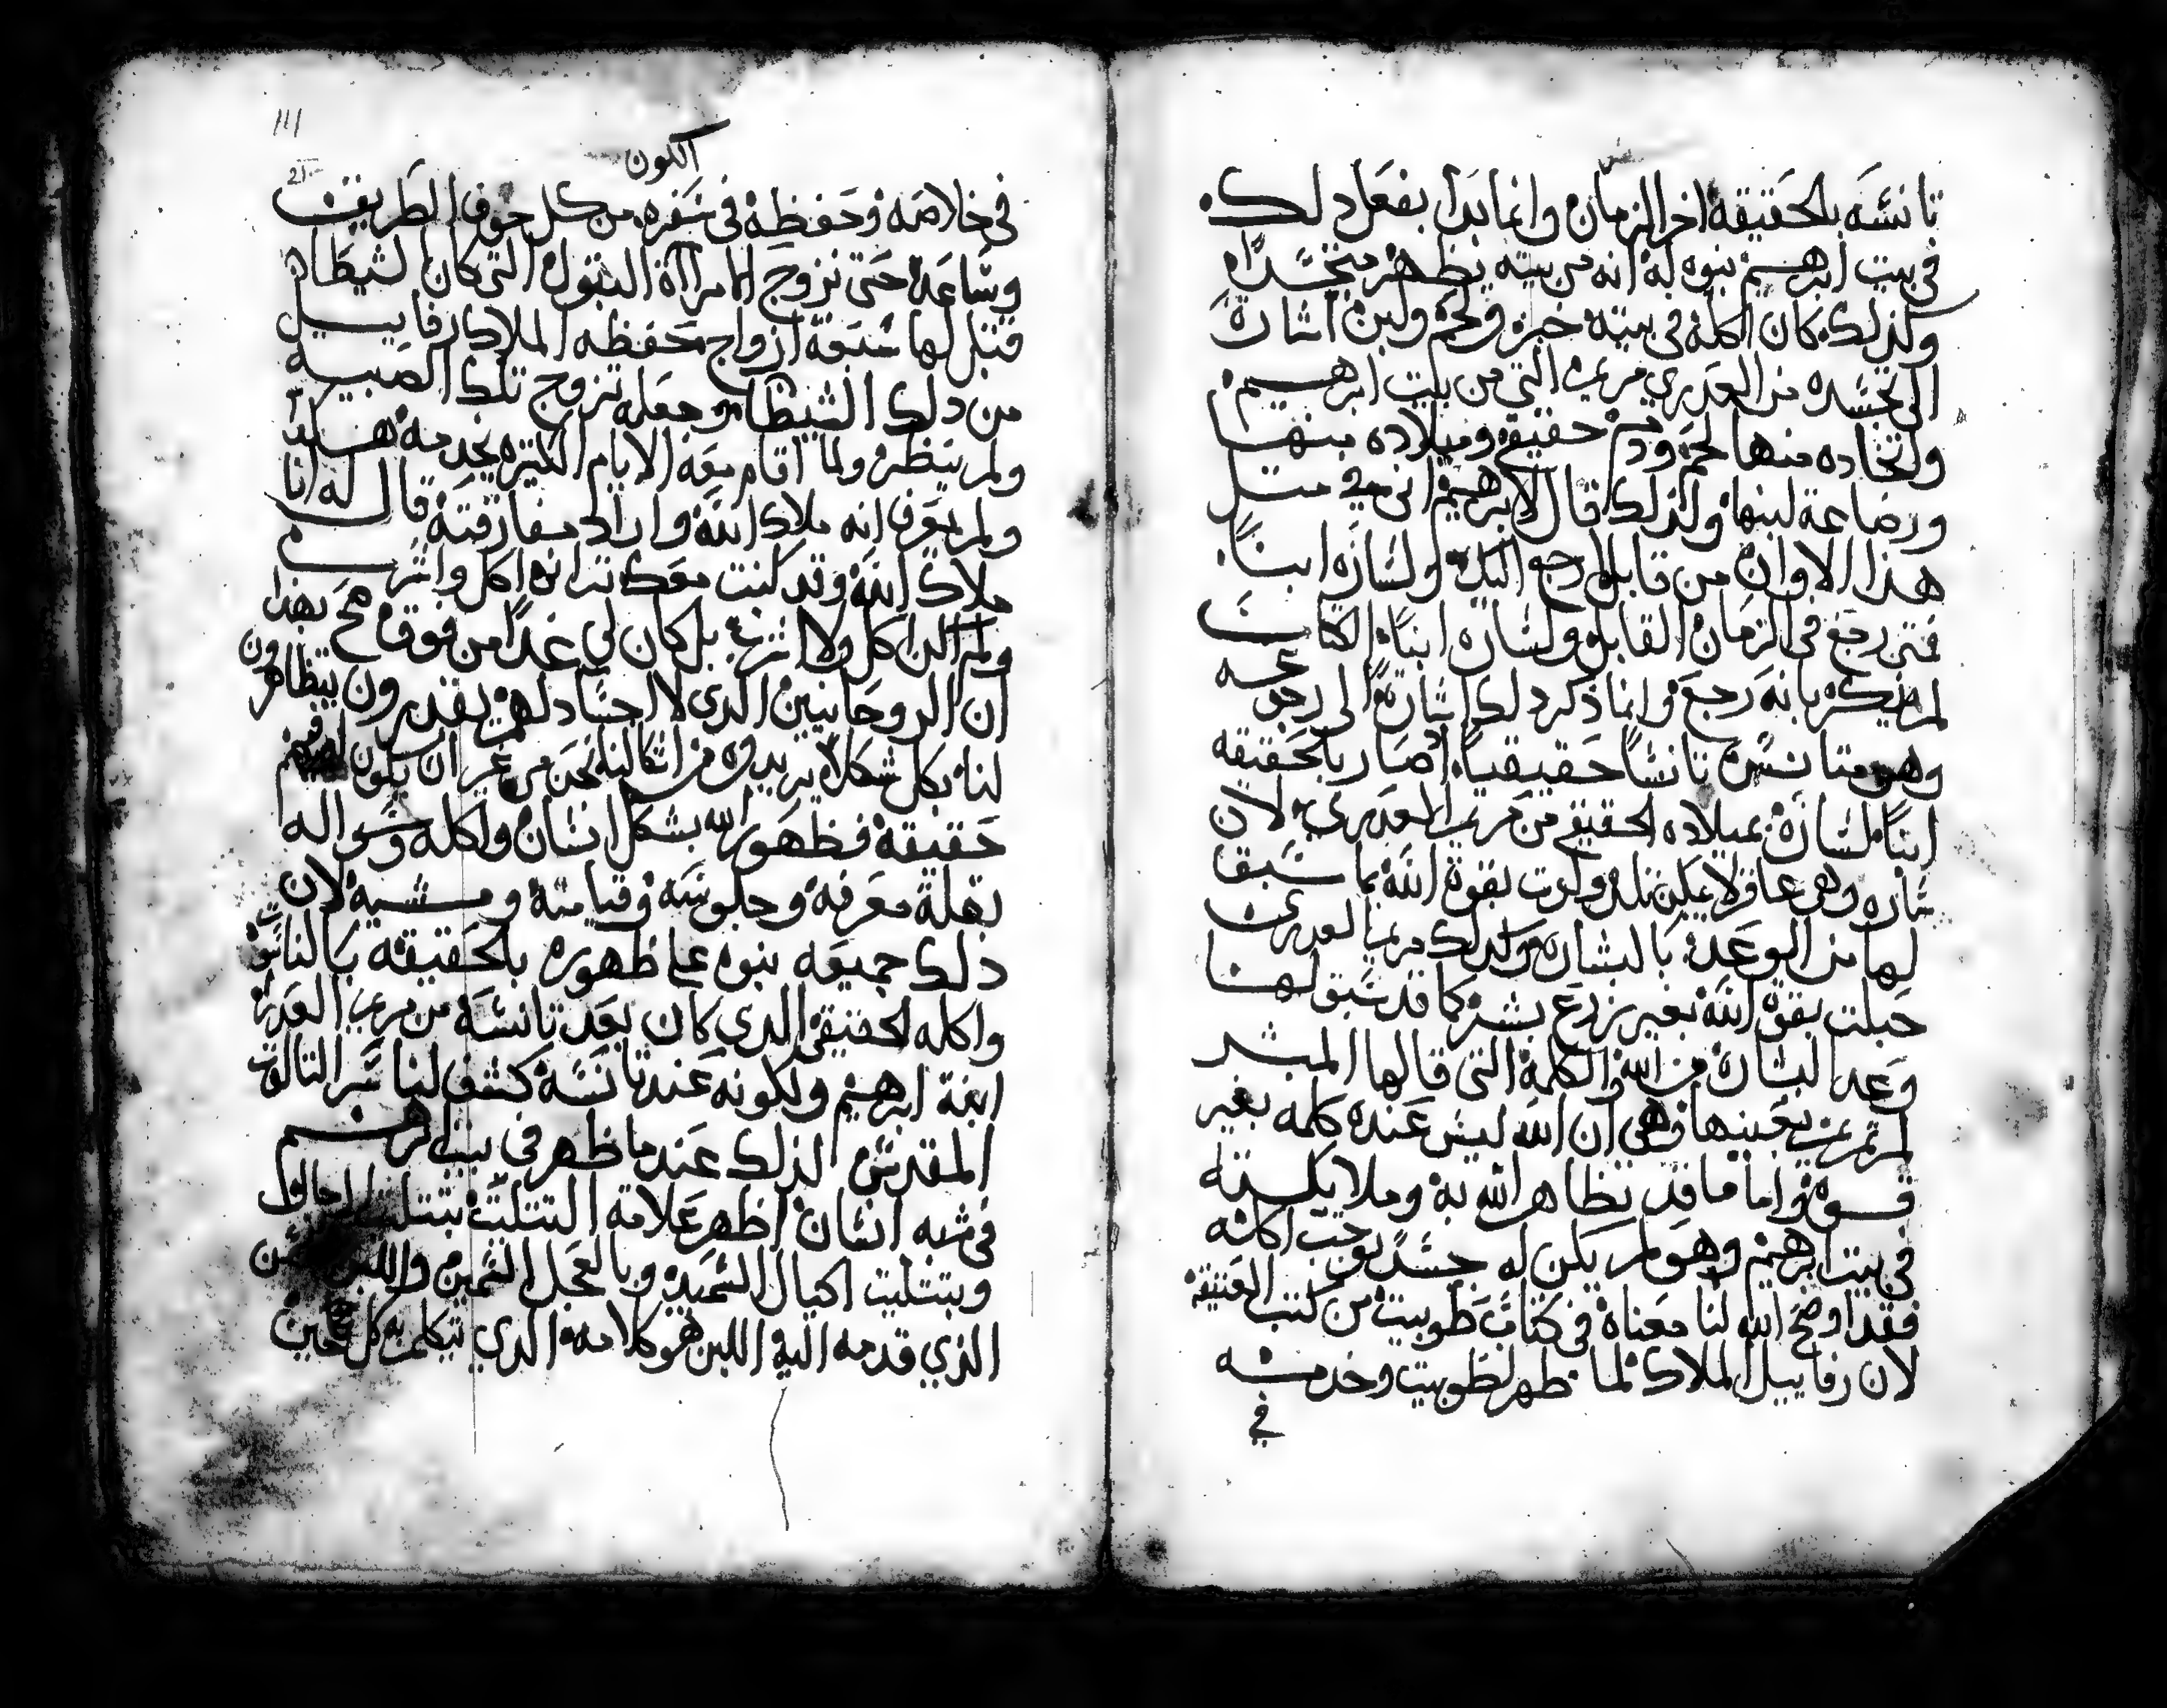 تانسه بالحقيقه اخر الزمان وانما بدا بفعل دلك
في بيت ابرهيم بنوه له انه من بيته يظهر متجسدًا
ولذلك كان اكله في بيته خبز ولحم ولبن اشاره
الى تجسده من العدري مريم التي من بيت ابرهيم
واتخاده منها لحم ودم حقيقي وميلاده منها
ورضاعة لبنها ولذلك قال لابرهيم انى في متل
هذا الاوان من قابل ارجع اليك ولساره ابنًا
فتى رجع في الزمان القابل ولساره ابنًا الكتاب
لم يدكر بانه رجع وانما ذكر دلك اشارةً الى رجوعه
وهو متانس تانسًا حقيقيًا اد صار بالحقيقه
ابنًا لساره بميلاده الحقيقي من مريم العدري لان
ساره وهي عاقر لا يمكن تلد ولدت بقوة الله بما سبق
لها من الوعد بالبشاره وكدلك مريم العدري
حبلت بقوة الله بغير زرع بشر كما قد سبق لها
وعد البشاره من الله والكلمة التي قالها المبشر
لمرتمريم بعينها وهي ان الله ليس عنده كلمه بغير
قوه واما ما قد تظاهر الله به وملايكته
في بيت ابرهيم وهو لم يكن له جسد يوجب اكله
فقد اوضح الله لنا معناه في كتاب طوبيت من كتب العتيقه
لان رفاييل الملاك لما ظهر لطوبيت وخدمه
في
111
الكون
21
في خلاصه وحفظه في سفره من كل خوف الطريق
وساعده حتى تزوج الامراة البتول التي كان الشيطان
قتل لها سبعة ازواج وحفظه الملاك رفاييل
من دلك الشيطان وجعله تزوج تلك الصبيه
ولم ينظره ولما اقام معه الايام الكتيره يخدمه هكدا
ولم يعرف انه ملاك الله واراد مفارقته قال له انا
ملاك الله وقد كنت معك ترانى اكل واشرب
ولم اكن اكل ولا اشرب بل كان لي غدًا من فوق صح بهذا
ان الروحانيين الدى لا اجساد لهم يقدرون يتظاهرون
لنا بكل شكل يريدوه من اشكالنا نحن من غير ان يكون لهم
حقيقة فظهور الله بشكل انسان واكله وسواله
بقلة معرفه وجلوسه وقيامته ومشيه لان
دلك جميعه بنوه على ظهوره بالحقيقه بالناسوت
واكله الحقيقي الدى كان بعد تانسه من مريم العدرى
ابنة ابرهيم ولكونه عند تانسه كشف لنا سر التالوت
المقدس لذلك عندما ظهر في بيت ابرهيم
في شبه انسان اظهر علامة التتليت بتتليت
وبتتليت اكيال السميد وبالعجل السمين واللبن والسمن
الذي قدمه اليه اللبن هو كلامه الدي تتكلم به كل حين